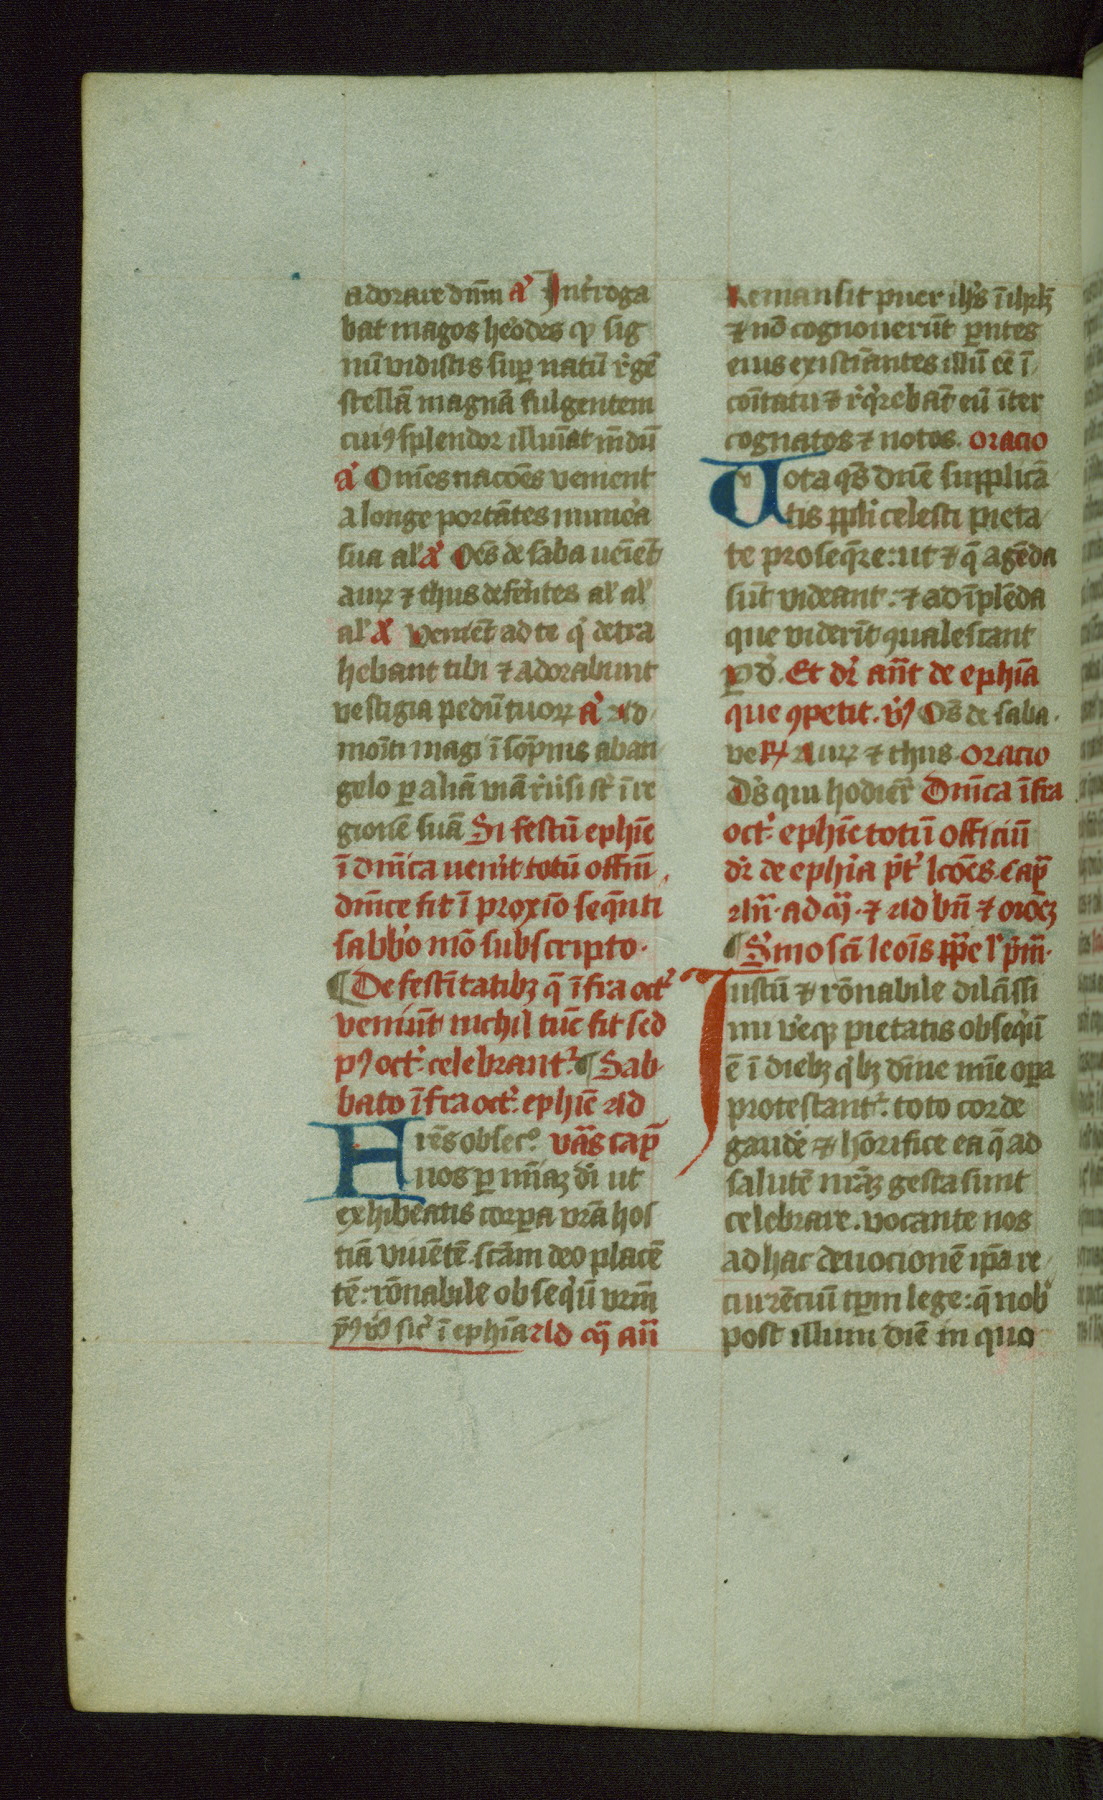 adorare dnm̄ a' Int'roga
bat magos he'odes qͦ sig
nū vidistis sup̱ natū r'gē
stellā magnā fulgentem
cui⁹ splendor illuīat mūdū
a' Om̄es nacōes venient
a longe portātes mune'a
sua al' a' Oēs de saba ueīēt
auꝝ ⁊ thus defe'ntes al' al'
al' a' Veniēt ad te q' detra
hebant tibi ⁊ adorabunt
vestigia pedū tuoꝝ a' Ad
moīti magi ī sōpnis ab an
gelo ꝑ aliā viā r'u'si st' ī re
gionē suā Si festū ephīe
ī dnīca uen'it totū offm̄
dnīce fit ī proxīo seq̄nti
sabb'o mō subscripto.
¶ De festītatibꝫ q̄ īfra oct'
veniūt nichil tūc fit sed
p⁹ oct' celebrant'. ¶ Sab
bato īfra oct'. ephīe ad
FRēs obsec° vās cap̄
uos ꝑ mīaꝫ d'i ut
exhibeatis corꝑa vrā hos
tiā viuētē. scām deo placē
tē: rōnabile obseq'ū vrm̄
sic' ī ephīa Ad cꝫ an̄
Remansit puer ih's ī ihrlꝫ
⁊ nō cognouerūt ꝑntes
eius existīantes illū eē ī
coītatu ⁊ r'q'rebāt eū īter
cognatos ⁊ notos. oracio
Vota q̄s dn̄e supplicā
tis ppli celesti pieta
te proseq̄re: ut ⁊ q̄ agēda
sūt videant: ⁊ ad īplēda
que viderīt ꝯualescant
ꝑ d'. Et dr' an̄t de ephīa
que ꝯpetit. v̄s Oēs de saba.
ve ℟ Auꝝ ⁊ thus. oracio
D's qui hodier' Dnīca īfra
oct' ephīe totū officiū
dr' de ephīa p̄t' lcōes. cap̄
⁊ ad bn̄ ⁊ oroēꝫ
¶ S'mo scī leoīs pp̄e l' p'm̄.
Iustū ⁊ rōnabile dilc̄issi
mi ve'eqꝫ pietatis obseq'ū
ē ī diebꝫ q'bꝫ dīne mīe oꝑa
protestant'. toto corde
gaud'e ⁊ hōrifice ea q̄ ad
salutē nrāꝫ gesta sunt
celebrare. vocante nos
ad hac deuocionē ip̄a re
currēciū tꝑm lege: q̄ nob'
post illum diē in quo